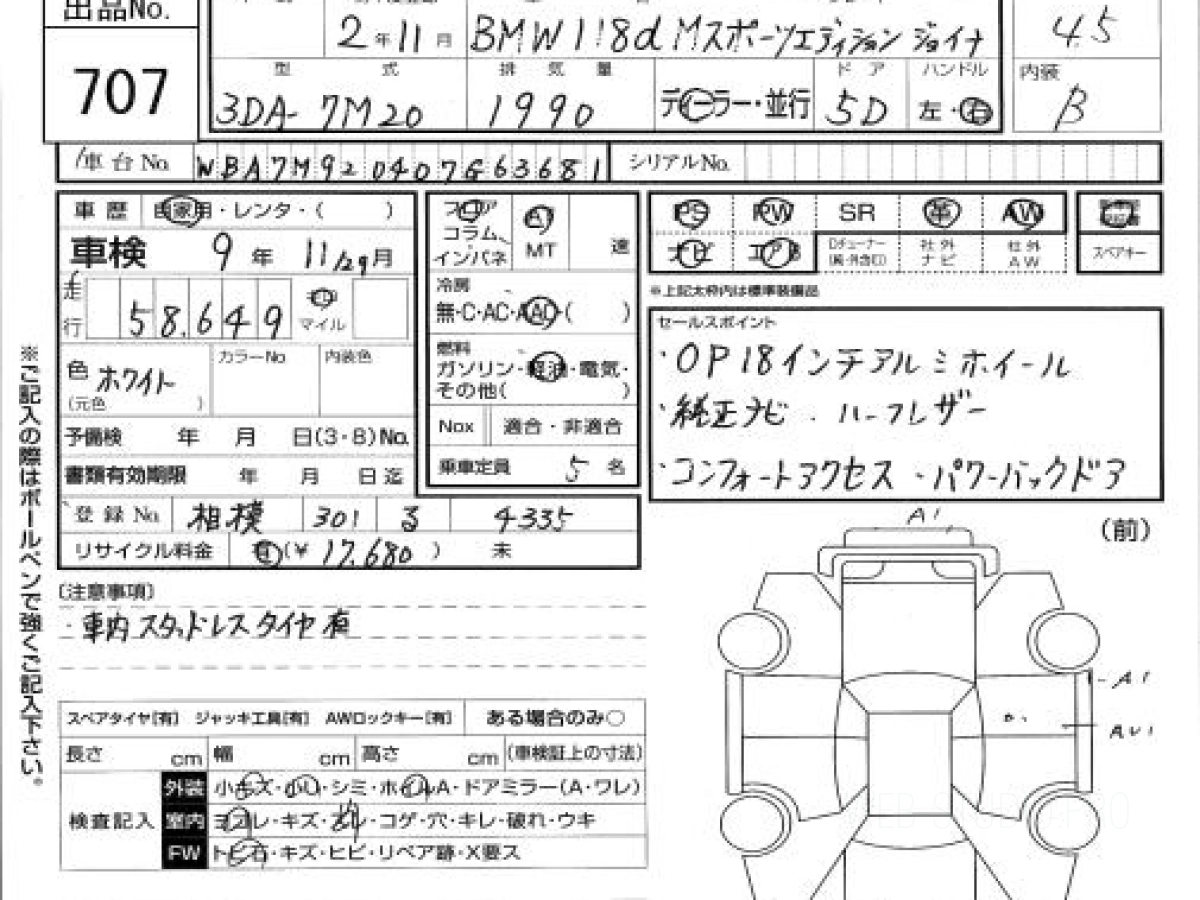 出品No.
707
2年11月 BMW118d Mスポーツエディション ジョイ+
4.5
型 式 排 気 量 ドア ハンドル 内装
3DA-7M20 1990 ディーラー・並行 5D 左・右 B
車台No. WBA7M920407G63681 シリアルNo.
車歴 自家用・レンタ・( )
車検 9年 11/29月
走行 58,649 マイル
色 ホワイト カラーNo 内装色
(元色 )
予備検 年 月 日(3・8)No.
書類有効期限 年 月 日迄
登録No. 相模 301 る 4335
リサイクル料金 有(¥ 17,680 ) 未
フロア AT
コラム MT 速
インパネ
冷房
無・C・AC・AAC・( )
燃料
ガソリン・軽油・電気・
その他( )
Nox 適合・非適合
乗車定員 5名
PS PW SR 革 AW
ナビ エアB Dチューナー 社外ナビ 社外AW スペアキー
※上記太枠内は標準装備品
セールスポイント
・OP18インチアルミホイール
・純正ナビ ・ハーフレザー
・コンフォートアクセス ・パワーバックドア
〔注意事項〕
・車内スタッドレスタイヤ有
スペアタイヤ[有] ジャッキ工具[有] AWロックキー[有] ある場合のみ○
長さ cm 幅 cm 高さ cm (車検証上の寸法)
検査記入
外装 小キズ・小凹・シミ・ホイルA・ドアミラー(A・ワレ)
室内 ヨゴレ・キズ・スレ・コゲ・穴・キレ・破れ・ウキ
FW トビ石・キズ・ヒビ・リペア跡・X要ス
(前)
A1
A1
AU1
※ご記入の際はボールペンで強くご記入下さい。